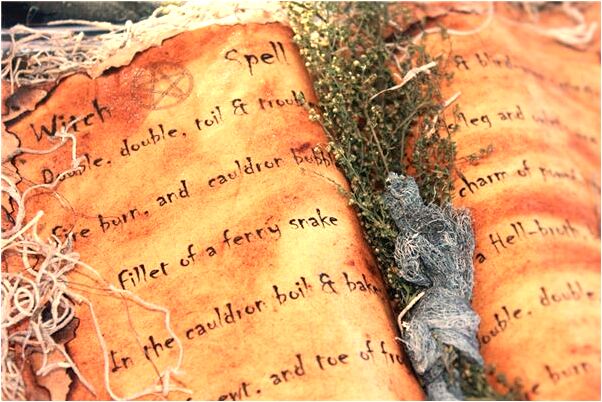 Witch Spell
Double, double, toil & troubl
Fire burn, and cauldron bubbl
Fillet of a fenny snake
In the cauldron boil & bake
ewt, and toe of fro
& blind
leg and
charm of
a Hell-broth
double, double
e burn